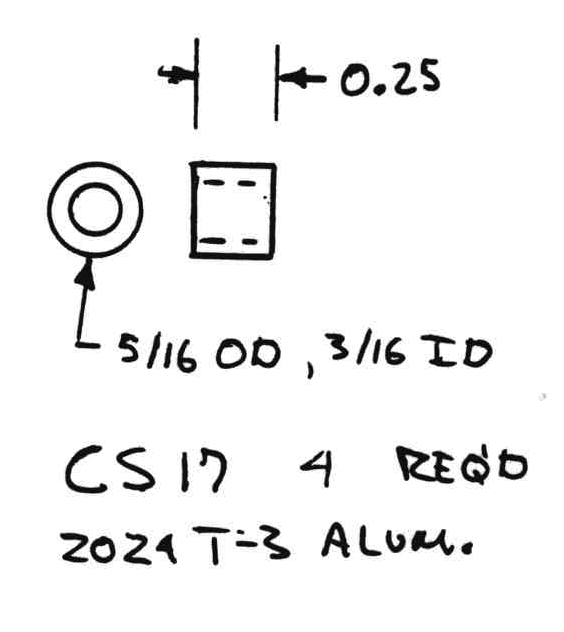 0.25
5/16 OD, 3/16 ID
CS17 4 REQ'D
2024 T-3 ALUM.